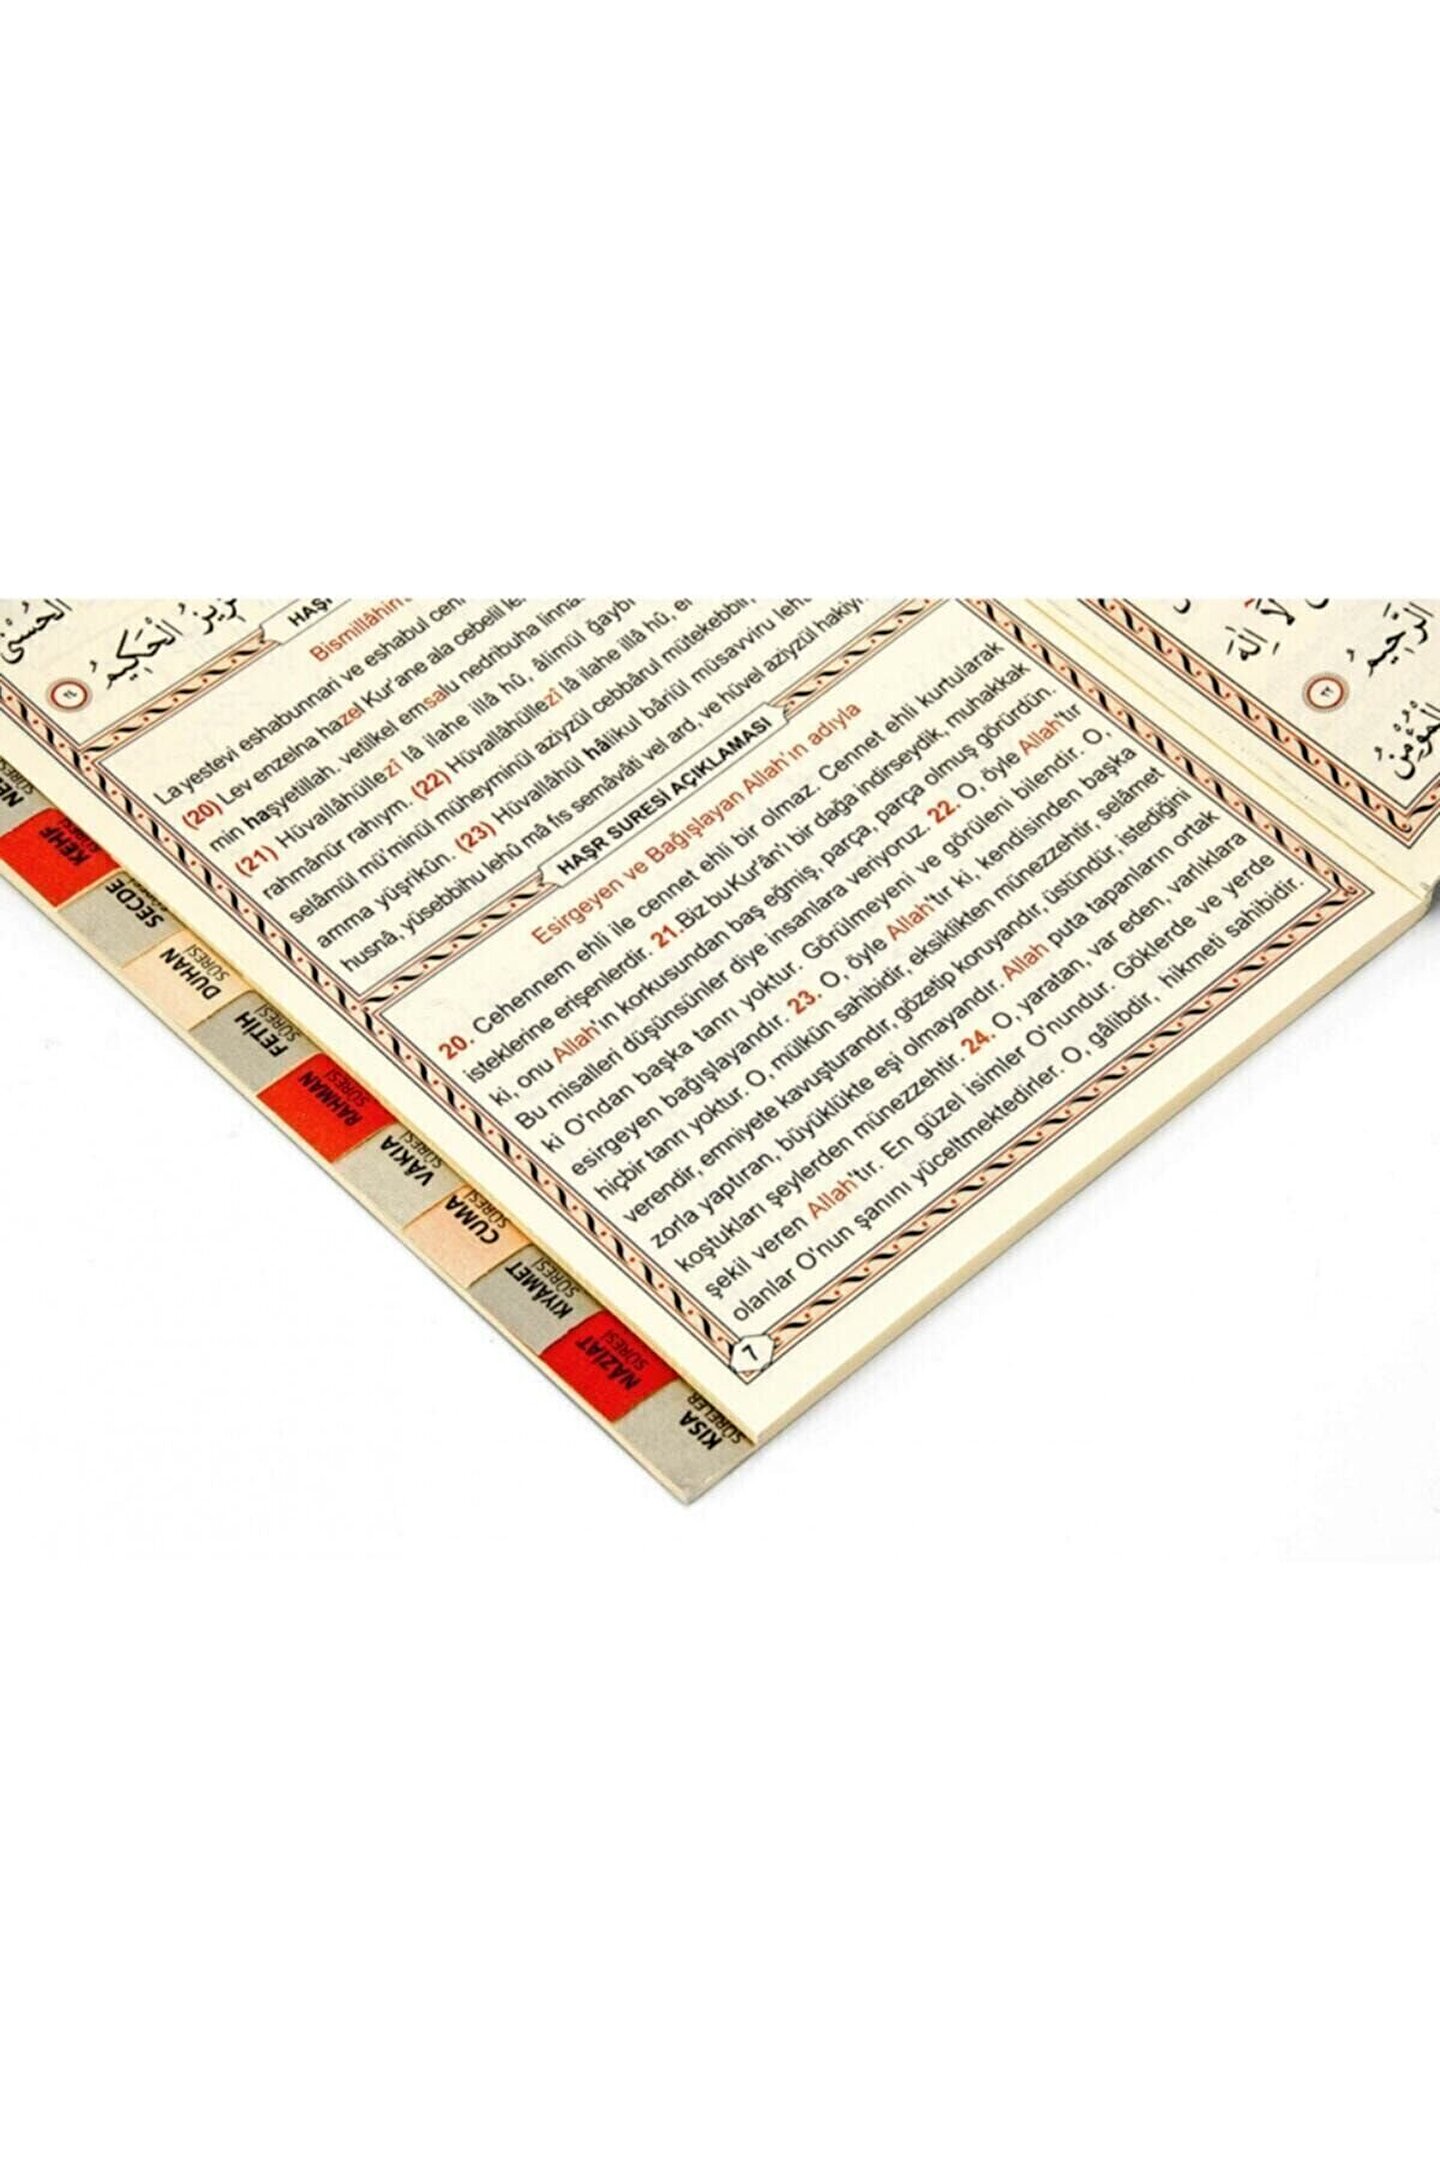 الْحُسْنٰى
الْحَكِيمُ
HAŞR
Bismillâhir
La yestevi eshabunnari ve eshabul cen
(20) Lev enzelna hazel Kur'ane ala cebelil le
min haşyetillah. vetilkel emsalu nedribuha linna
(21) Hüvallâhüllezî lâ ilahe illâ hû, âlimül ğaybi
rahmânür rahıym. (22) Hüvallâhüllezî lâ ilahe illâ hû, el
selâmül mü'minül müheyminül aziyzül cebbârul mütekebbir,
amma yüşrikûn. (23) Hüvallâhül hâlikul bâriül müsavviru lehü
husnâ, yüsebbihu lehû mâ fıs semâvâti vel ard, ve hüvel aziyzül hakiy
HAŞR SURESİ AÇIKLAMASI
Esirgeyen ve Bağışlayan Allah'ın adıyla
20. Cehennem ehli ile cennet ehli bir olmaz. Cennet ehli kurtularak
isteklerine erişenlerdir. 21. Biz bu Kur'ân'ı bir dağa indirseydik, muhakkak
ki, onu Allah'ın korkusundan baş eğmiş, parça, parça olmuş görürdün.
Bu misalleri düşünsünler diye insanlara veriyoruz. 22. O, öyle Allah'tır
ki O'ndan başka tanrı yoktur. Görülmeyeni ve görüleni bilendir. O,
esirgeyen bağışlayandır. 23. O, öyle Allah'tır ki, kendisinden başka
hiçbir tanrı yoktur. O, mülkün sahibidir, eksiklikten münezzehtir, selâmet
verendir, emniyete kavuşturandır, gözetip koruyandır, üstündür, istediğini
zorla yaptıran, büyüklükte eşi olmayandır. Allah puta tapanların ortak
koştukları şeylerden münezzehtir. 24. O, yaratan, var eden, varlıklara
şekil veren Allah'tır. En güzel isimler O'nundur. Göklerde ve yerde
olanlar O'nun şanını yüceltmektedirler. O, gâlibdir, hikmeti sahibidir.
7
SÛRESİ
KEHF
SECDE
DUHAN
SÛRESİ
FETİH
SÛRESİ
RAHMAN
SÛRESİ
VÂKIA
SÛRESİ
CUMA
SÛRESİ
KIYÂMET
SÛRESİ
NÂZİAT
SÛRESİ
KISA
SÛRELER
لَا اِلٰهَ
الرَّحِيمُ
الْمُؤْمِنُ